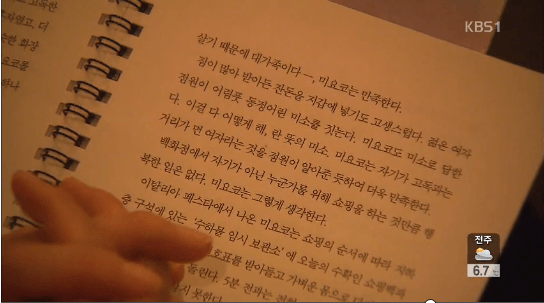 고독한
자였고, 더
순한 화장
요코를
하나
살기 때문에 대가족이다―, 미요코는 만족한다.
짐이 많아 받아든 잔돈을 지갑에 넣기도 고생스럽다. 젊은 여자
점원이 어림풋 동정어린 미소를 짓는다. 미요코도 미소로 답한
다. 이걸 다 어떻게 해, 란 뜻의 미소. 미요코는 자기가 고독과는
거리가 먼 여자라는 것을 점원이 알아준 듯하여 더욱 만족한다.
백화점에서 자기가 아닌 누군가를 위해 쇼핑을 하는 것만큼 행
복한 일은 없다. 미요코는 그렇게 생각한다.
이탈리아 페스타에서 나온 미요코는 쇼핑의 순서에 따라 지하
층 구석에 있는 '수하물 임시 보관소'에 오늘의 수확인 쇼핑백과
호표를 받아들고 가벼운 몸으로 다
돌린다. 5분 전과는
하지 못한다.
KBS1
전주
6.7